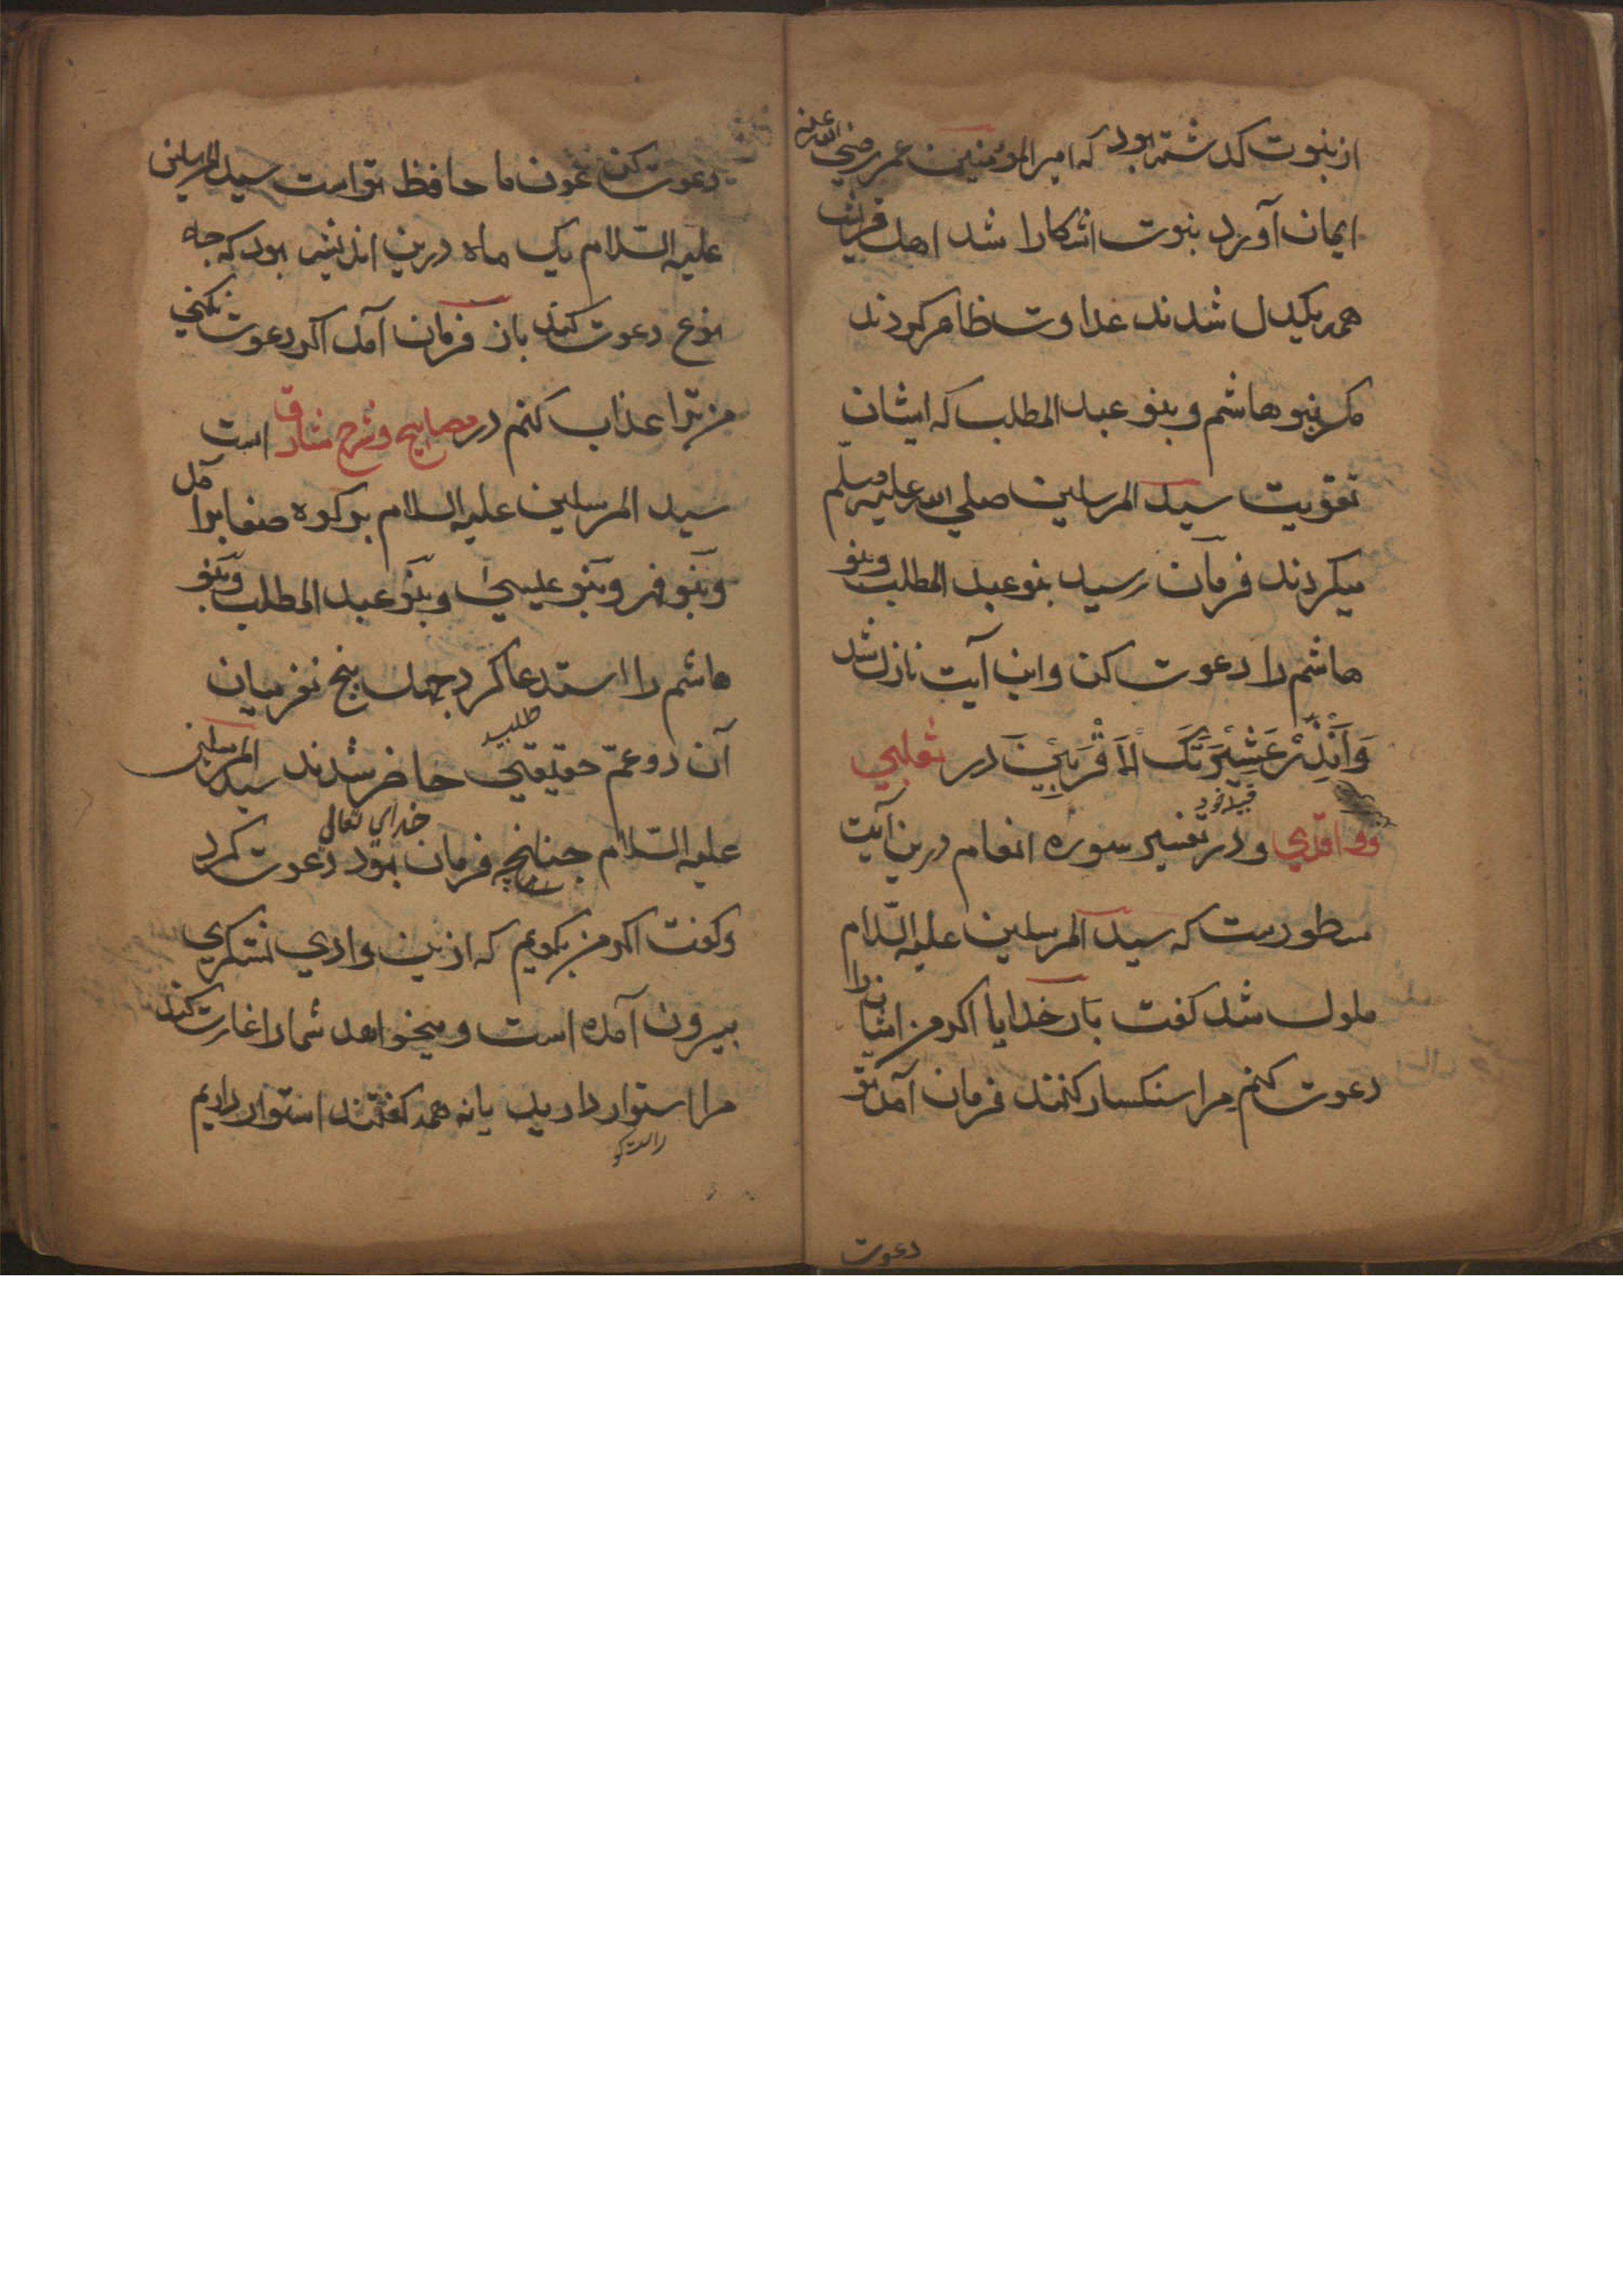 از نبوت کذشته بود که امیر المؤمنین عمر رضی الله عنه
ایمان آورد نبوت اشکارا شد اهل قریش
همه یکدل شدند عداوت ظاهر کردند
مکر بنو هاشم و بنو عبد المطلب که ایشان
تقویت سید المرسلین صلی الله علیه وسلم
میکردند فرمان رسید بنو عبد المطلب وبنو
هاشم را دعوت کن واین آیت نازل شد
وَاَنْذِرْ عَشِیْرَتَکَ الْاَقْرَبِیْنَ در ثعلبی
قبیله خود
وواقدی ودر تفسیر سوره انعام درین آیت
مسطورست که سید المرسلین علیه السّلام
ملول شد کفت بار خدایا اکر من ایشان را
دعوت کنم مرا سنکسار کنند فرمان آمد تو
دعوت
دعوت کن عون ما حافظ تو است سید المرسلین
علیه السّلام یک ماه درین اندیشه بود که چه
نوع دعوت کند باز فرمان آمد اکر دعوت نکنی
من ترا عذاب کنم در مصابیح وشرح مشارق است
سید المرسلین علیه السلام بر کوه صفا برآمد
وبنو فهر وبنو عیسی وبنو عبد المطلب وبنو
هاشم را استدعا کرد چهل پنج نفر میان
طلب
آن دو عمّ حقیقی حاضر شدند سید المرسلین
خدای تعالی
علیه السّلام چنانچه فرمان بود دعوت کرد
وکفت اکر من بکویم که ازین وادی لشکری
بیرون آمده است ومیخواهد شمارا غارت کند
مرا استوار دارید یا نه همه کفتند استوار داریم
راست کو